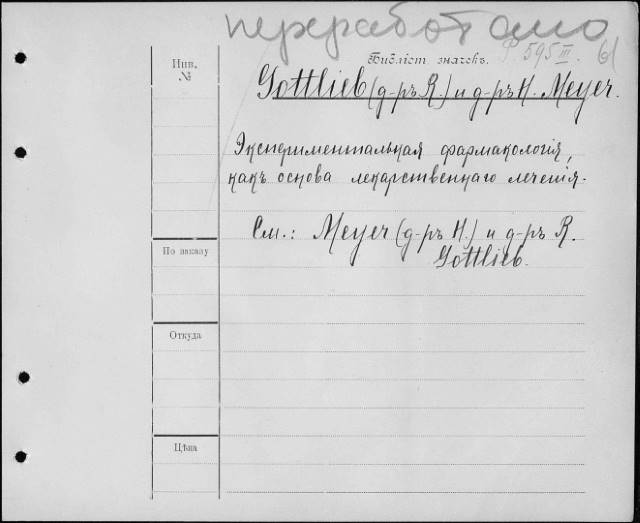 переработано
Инв.
№
Библіот. значекъ.
P 595 III
Gottlieb (д-ръ R.) и д-ръ H. Meyer.
Экспериментальная фармакологія,
какъ основа лекарственнаго леченія.
См.: Meyer (д-ръ H.) и д-ръ R.
Gottlieb.
По заказу
Откуда
Цѣна